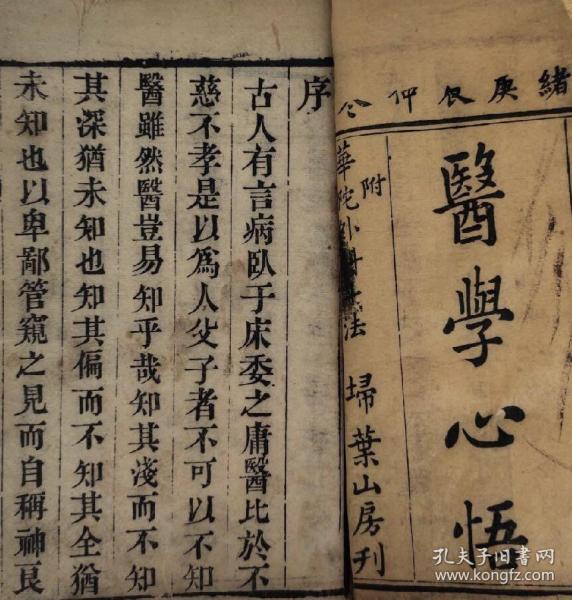 緒庚辰仲冬
醫學心悟
附
華陀外科十法
埽葉山房刊
序
古人有言病臥于床委之庸醫比於不
慈不孝是以爲人父子者不可以不知
醫雖然醫豈易知乎哉知其淺而不知
其深猶未知也知其偏而不知其全猶
未知也以卑鄙管窺之見而自稱神良
孔夫子旧书网
www.kongfz.com